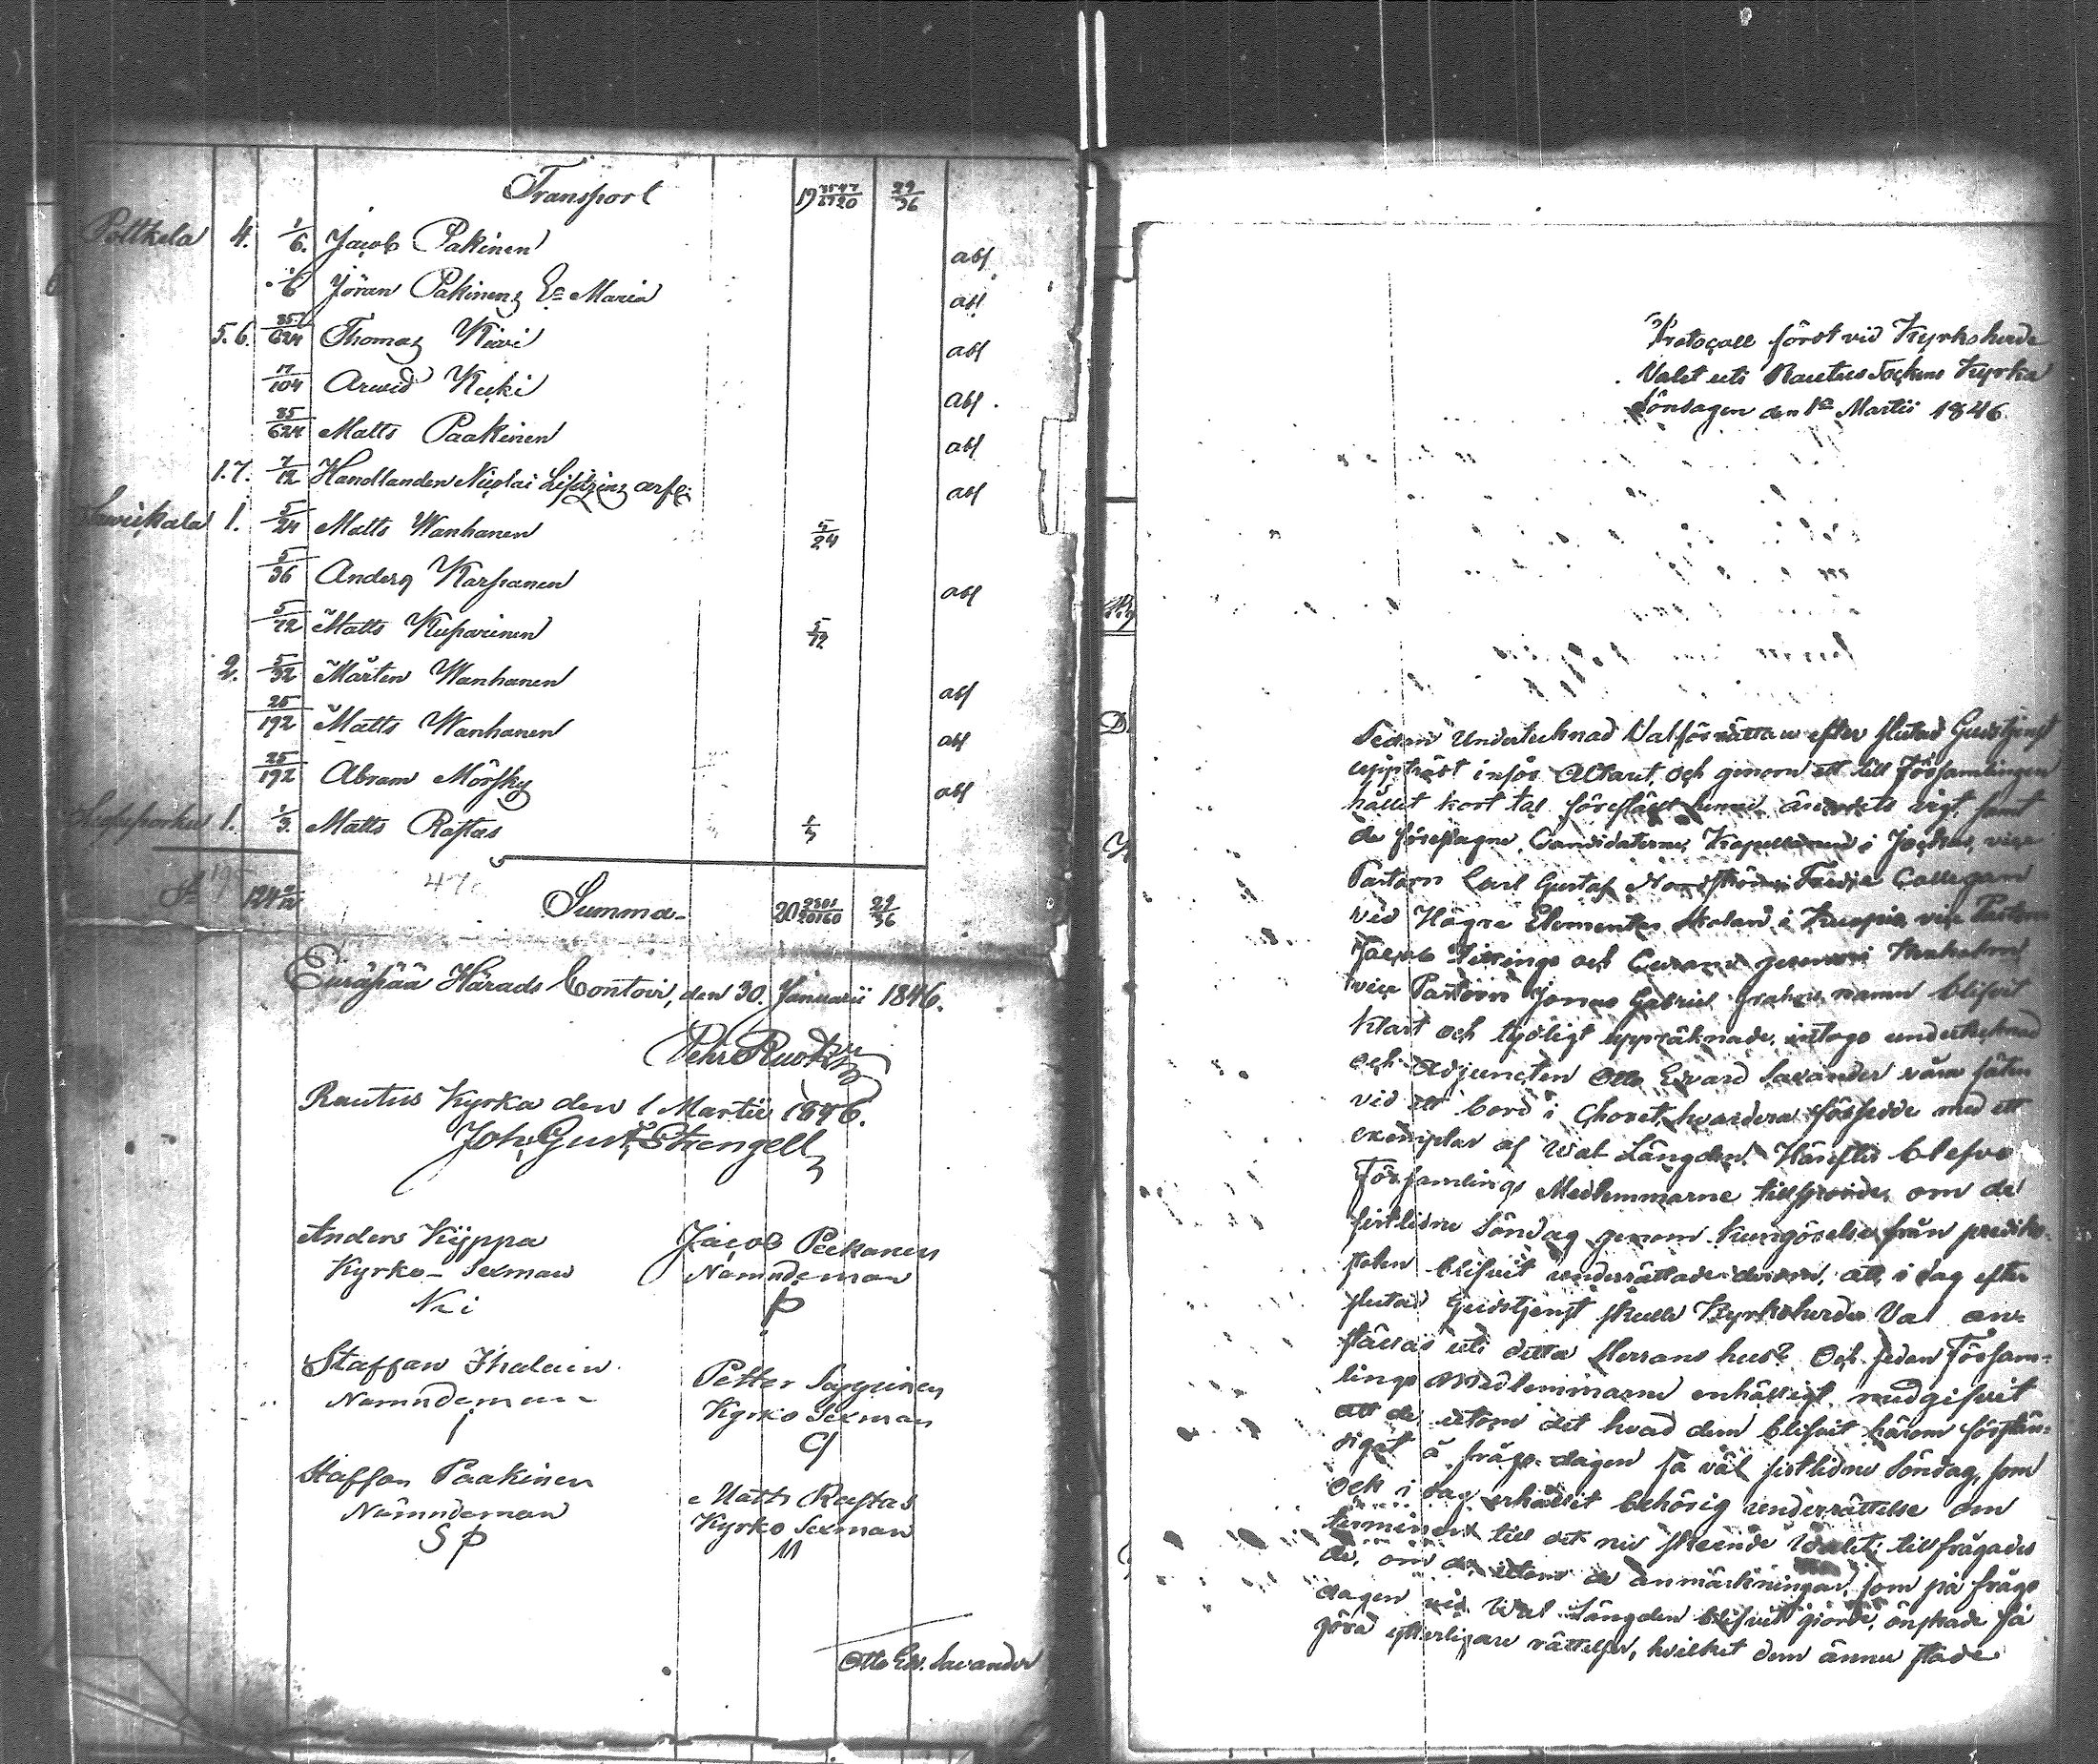 Transport 19 3547/6720 29/36
Pölkelä 4. 1/6. Jacob Pakinen abs
1/6 Jöran Pakinens Ea Maria abs
5.6. 85/624 Thomas Kiwi abs
17/104 Arwid Kuki abs.
85/624 Matts Paakinen abs
1.7. 7/12 Handlanden Nicolai arfv: abs
1. 5/24 Matts Wanhanen 5/24
5/36 Anders Karhanen abs
5/72 Matts Kuparinen 5/72
2. 5/32 Mårten Wanhanen abs
25/192 Matts Wanhanen abs
25/192 Abram Mörsky abs
1. 1/3. Matts Rastas 1/3
Summa 20 2301/20160 29/36
47
Euräpää Härads Contoir, den 30. Januarii 1846.
Rautus Kyrka den 1 Martii 1846.
Joh. Gust. Strengell
Anders Kyppa
Kyrko-Sexman
Jacob Peekonen
Nämndeman
Staffan Ihalain
Nämndeman
Petter Sapparinen
Kyrko Sexman
Staffan Paakinen
Nämndeman
S P
Matts Rastas
Kyrko Sexman
Otto Ed. Savander
Protocoll fördt vid Kyrkoherde
Valet uti Rautus Sockens Kyrka
Söndagen den 1a Martii 1846.
Sedan Undertecknad Valförrättare efter slutad Gudstjenst
uppträdt inför Altaret och genom ett till Församlingen
hållet kort tal föreställt henne ärendets vigt, samt
de föreslagne Candidaterne, Kapellanen i Jockas, vice
Pastorn Carl Gustaf Tredje Collegan
vid Högre Elementar Skolan i Kuopio vice Pastorn
och
vice Pastorn Jonas Gabriel namn blifvit
klart och tydligt uppräknade, intogo undertecknad
och Adjuncten Otto Edvard Savander våra säten
vid ett bord i Choret, hvardera försedde med ett
exemplar af Val Längden. Härefter blefvo
Församlings Medlemmarne tillsporde, om de
sistlidne Söndag genom kungörelse från prediko-
stolen blifvit underrättade derom, att i dag efter
slutad Gudstjenst skulle Kyrkoherde Val an-
ställas uti detta Herrans hus? Och sedan Försam-
lings Medlemmarne enhälligt medgifvit
att de utom det hvad dem blifvit härom förstän-
digat å fråge dagen så väl sistlidne Söndag, som
och i dag erhållit behörig underrättelse om
terminen till det nu skeende Valet; tillfrågades
de, om de utom de anmärkningar, som på fråge
dagen vid Val Längden blifvit gjorde, önskade få
göra ytterligare rättelser, hvilket dem ännu stode